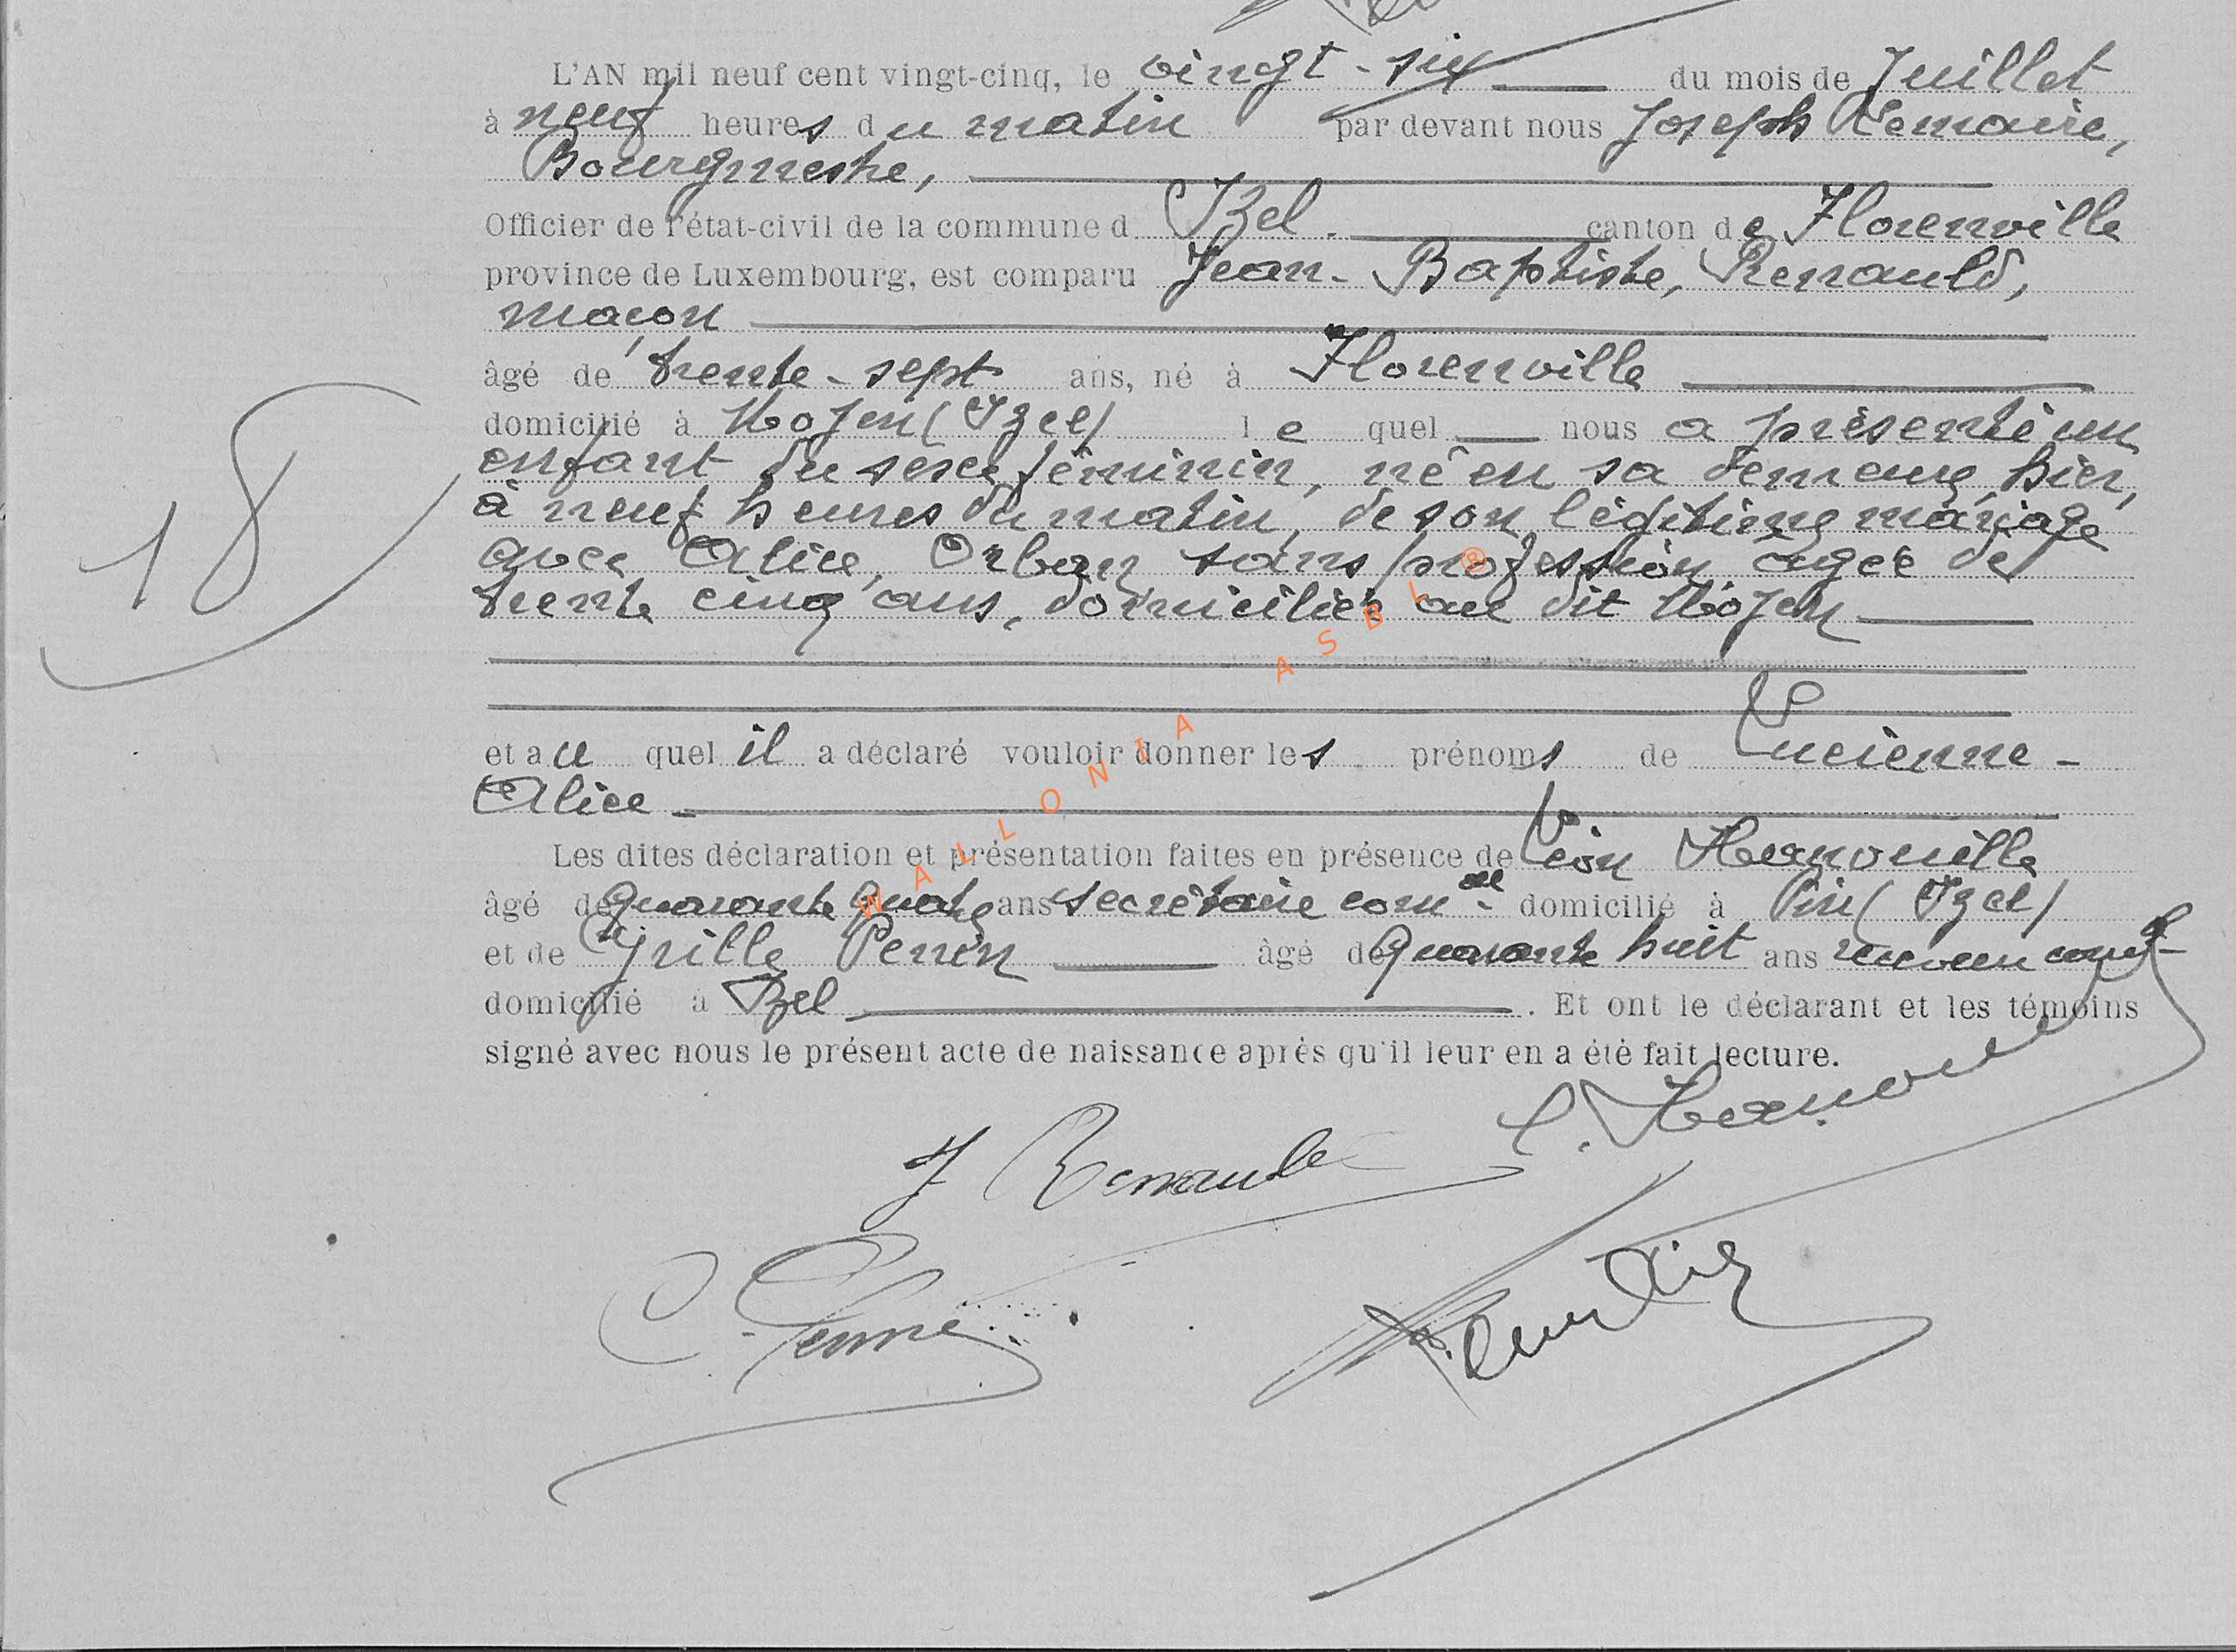 L'AN mil neuf cent vingt-cinq, le vingt-six du mois de Juillet
à neuf heures du matin par devant nous Joseph Lemaire,
Bourgmestre,
Officier de l'état-civil de la commune d Izel. canton de Florenville
province de Luxembourg, est comparu Jean-Baptiste, Renauld,
maçon
âgé de trente-sept ans, né à Florenville
domicilié à Moyen (Izel) le quel nous a présenté un
enfant du sexe féminin, né en sa demeure, hier,
à neuf heures du matin, de son légitime mariage
avec Alice, Orban sans profession, âgée de
trente cinq ans, domiciliée au dit Moyen
18
et au quel il a déclaré vouloir donner les prénoms de Lucienne-
Alice
Les dites déclaration et présentation faites en présence de Léon
âgé de quarante quatre ans secrétaire comal domicilié à Pin (Izel)
et de Cyrille Perrin âgé de quarante huit ans receveur coml
domicilié à Izel. Et ont le déclarant et les témoins
signé avec nous le présent acte de naissance après qu'il leur en a été fait lecture.
J Renauld
WALLONIA ASBL ®